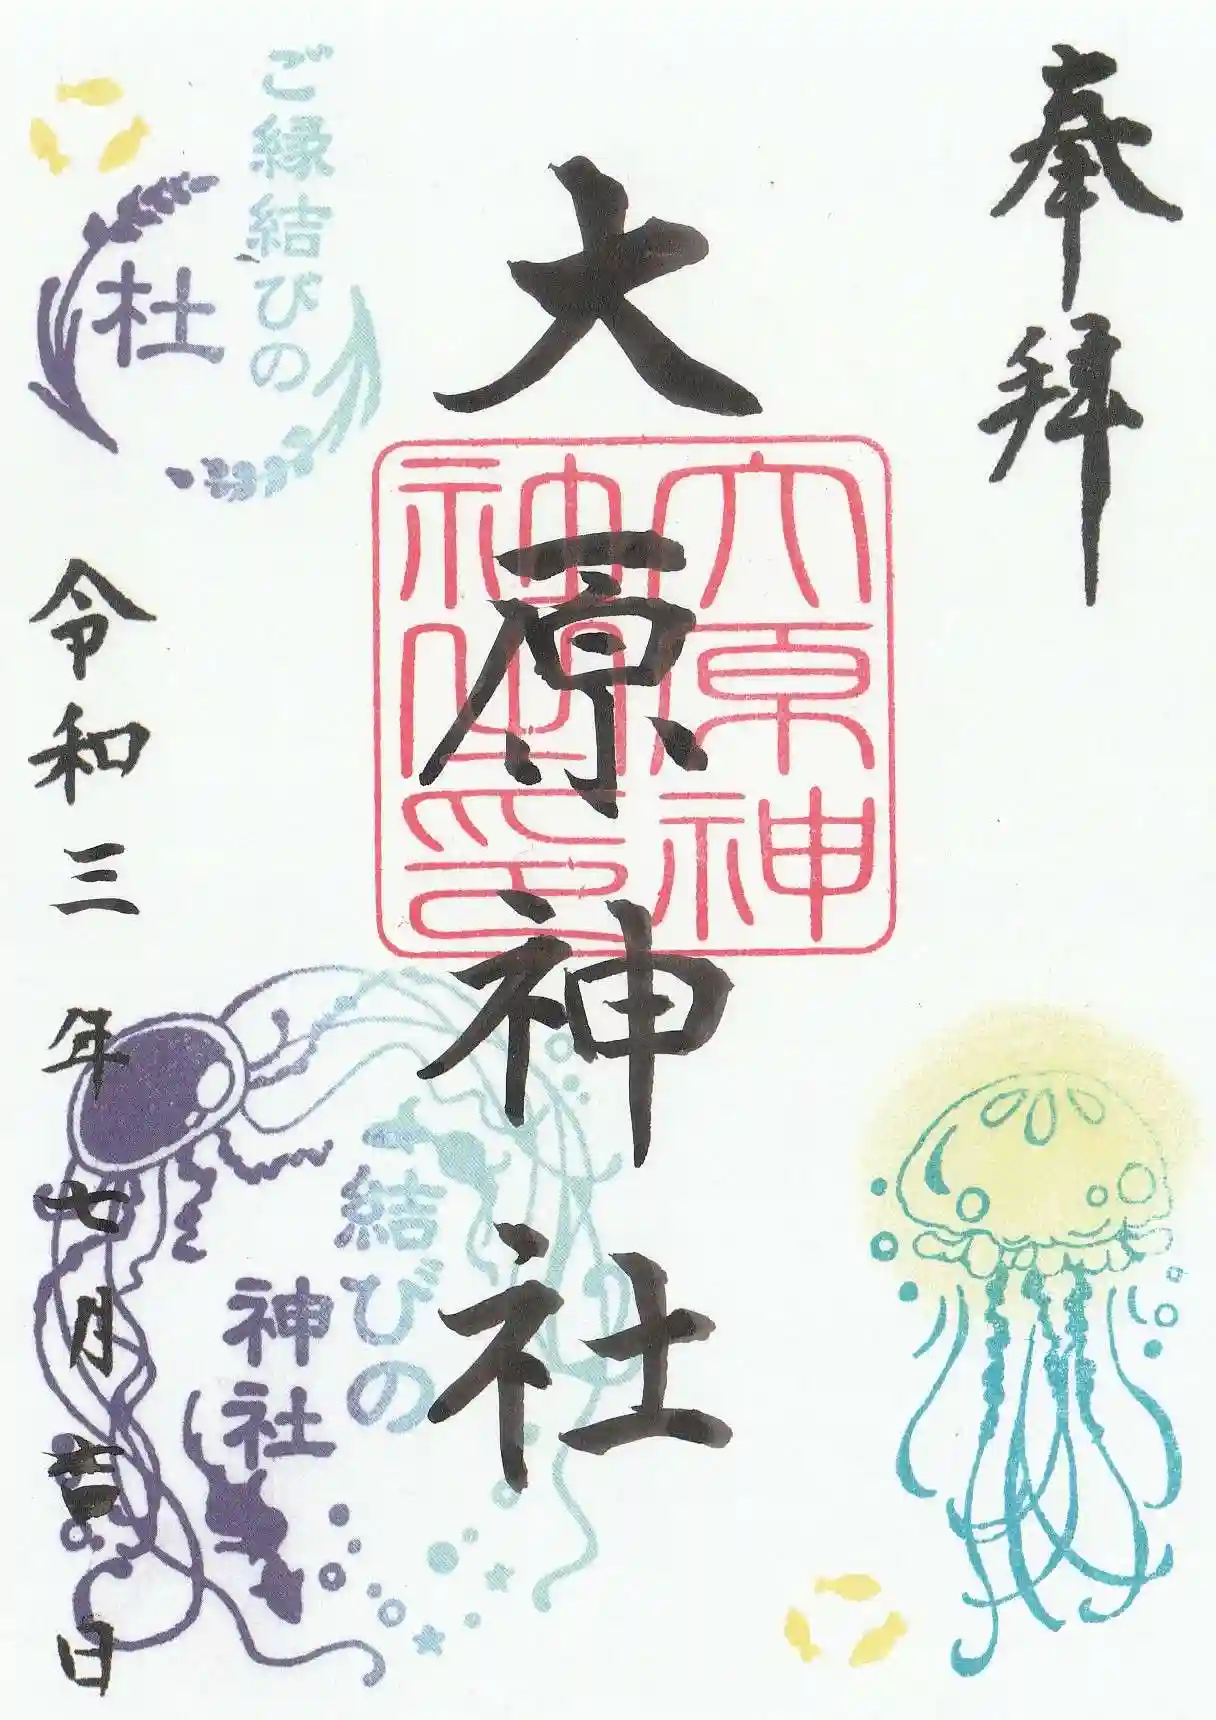 奉拝
大原神社
大原神
神社印
ご縁結びの
杜
結びの
神社
令和三年七月吉日